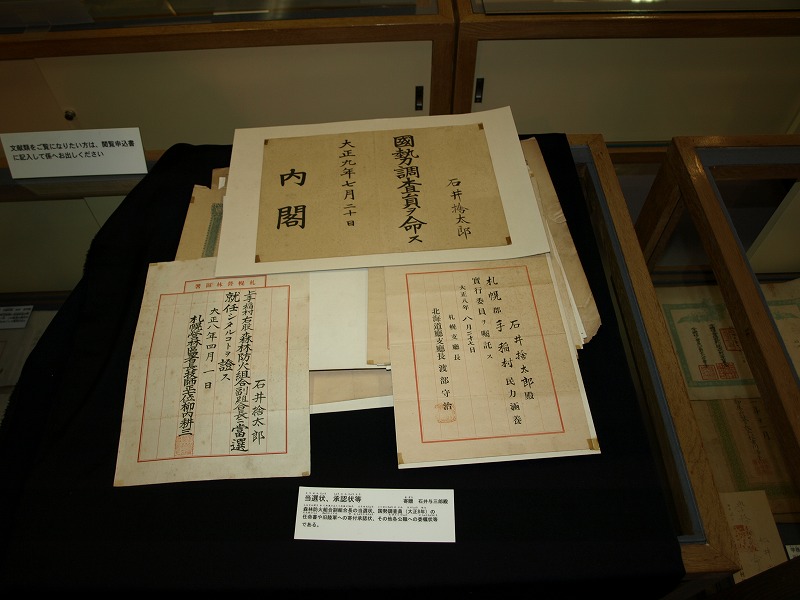 文献類をご覧になりたい方は、閲覧申込書
に記入して係へお出しください
石井捨太郎
國勢調査員ヲ命ス
大正九年七月二十日
内閣
札幌營林區署
石井捨太郎
上手稲村右股森林防火組合副組合長ニ當選
就任シタルコトヲ證ス
大正八年四月一日
札幌營林區署長技師正
石井捨太郎殿
札幌郡手稲村民力涵養
實行委員ヲ嘱託ス
大正八年八月二十七日
札幌支廳長
北海道廳支廳長渡部守治
当選状、承認状等
寄贈 石井与三郎殿
森林防火組合副組合長の当選状、国勢調査員（大正9年）の
任命書や旧陸軍への寄付承認状、その他各公職への委嘱状等
である。